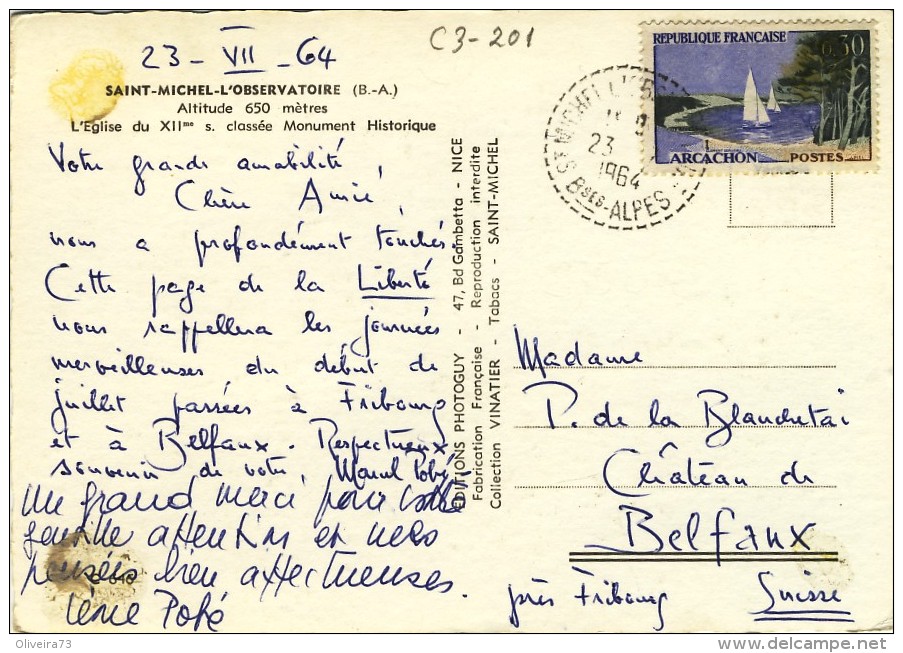 C3-201
23 - VII - 64
SAINT-MICHEL-L'OBSERVATOIRE (B.-A.)
Altitude 650 mètres
L'Eglise du XIIme s. classée Monument Historique
Votre grande amabilité,
Chère Amie,
nous a profondément touchés.
Cette page de la Liberté
nous rappellera les journées
merveilleuses du début de
juillet passées à Fribourg
et à Belfaux. Respectueux
souvenir de votre Marcel
Un grand merci pour votre
gentille attention et mes
pensées bien affectueuses.
EDITIONS PHOTOGUY - 47, Bd Gambetta - NICE
Fabrication Française - Reproduction interdite
Collection VINATIER - Tabacs - SAINT-MICHEL
REPUBLIQUE FRANÇAISE
0,30
ARCACHON POSTES
ST MICHEL L'OBSE
23
1964
Bses-ALPES
Madame
P. de la
Château de
Belfaux
près Fribourg Suisse
Oliveira73
www.delcampe.net